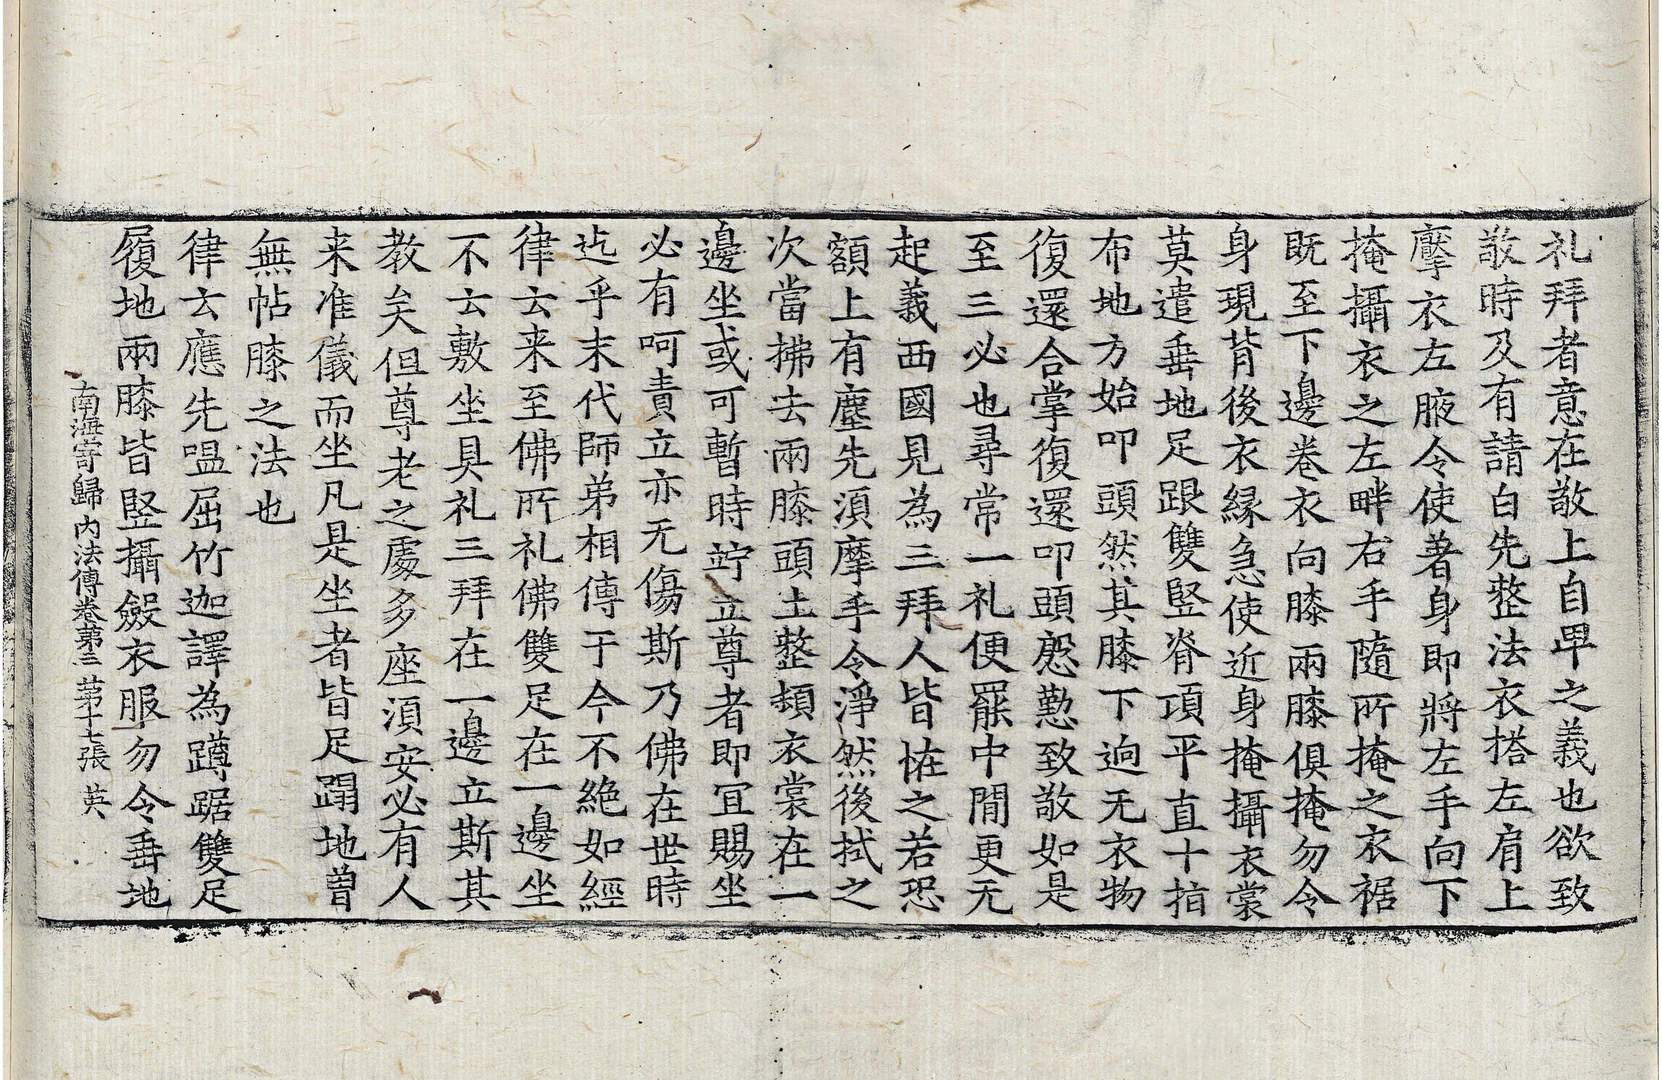 礼拜者意在敬上自卑之義也欲致
敬時及有請白先整法衣搭左肩上
擪衣左腋令使著身即將左手向下
掩攝衣之左畔右手隨所掩之衣裾
既至下邊卷衣向膝兩膝俱掩勿令
身現背後衣緣急使近身掩攝衣裳
莫遣垂地足跟雙竪脊項平直十指
布地方始叩頭然其膝下迥无衣物
復還合掌復還叩頭慇懃致敬如是
至三必也尋常一礼便罷中間更无
起義西國見為三拜人皆恠之若恐
額上有塵先湏摩手令淨然後拭之
次當拂去兩膝頭土整頓衣裳在一
邊坐或可暫時竚立尊者即冝賜坐
必有呵責立亦无傷斯乃佛在世時
迄乎末代師弟相傳于今不絶如經
律云来至佛所礼佛雙足在一邊坐
不云敷坐具礼三拜在一邊立斯其
教矣但尊老之處多座湏安必有人
来准儀而坐凡是坐者皆足蹋地曾
無帖膝之法也
律云應先嗢屈竹迦譯為蹲踞雙足
履地兩膝皆竪攝斂衣服勿令垂地
南海寄歸內法傳卷第三 第十七張 英